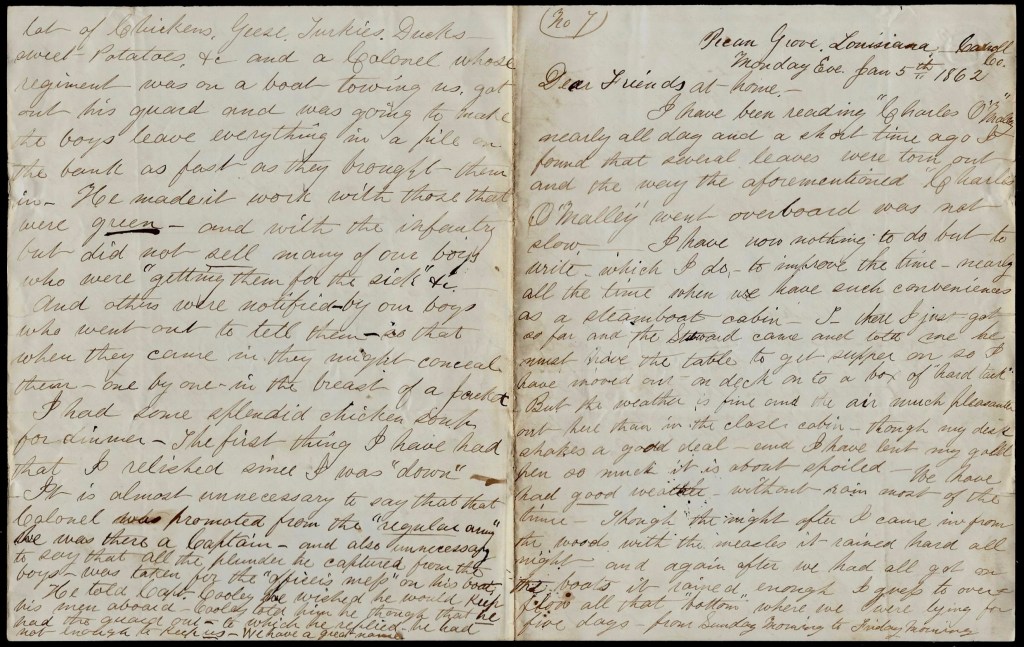 lot of Chickens, Geese, Turkies, Ducks—
sweet Potatoes, &c and a Colonel whose
regiment was on a boat towing us, got
out his guard and was going to make
the boys leave everything in a pile on
the bank as fast as they brought them
in— He made it work with those that
were green — and with the infantry
but did not sell many of our boys
who were "getting them for the sick" &c.
And others were notified by our boys
who went out to tell them — so that
when they came in they might conceal
them — one by one in the breast of a jacket
I had some splendid chicken soup
for dinner — The first thing I have had
that I relished since I was "down" —
— It is almost unnecessary to say that that
Colonel was promoted from the "regular army"
he was there a Captain — and also unnecessary
to say that all the plunder he captured from the
boys — was taken for the "officers mess" on his boat.
He told Capt. Cooley he wished he would keep
his men aboard — Cooley told him he though that he
had the guard out — to which he replied — he had
not enough to keep us — We have a great name
(No 7)
Pecan Grove, Louisiana, Carroll Co.
Monday Eve. Jan 5th 1862
Dear Friends at home. —
I have been reading "Charles O'Malley"
nearly all day and a short time ago I
found that several leaves were torn out
and the way the aforementioned "Charles
O'Malley" went overboard was not
slow — I have now nothing to do but to
write — which I do — to improve the time — nearly
all the time when we have such conveniences
as a steamboat cabin — I — there I just got
so far and the Steward came and told me he
must have the table to get supper on so I
have moved out on deck on to a box of "hard tack"
But the weather is fine and the air much pleasanter
out here than in the close cabin — though my desk
shakes a good deal — and I have bent my gold
pen so much it is about spoiled — We have
had good weather — without rain most of the
time — Though the night after I came in from
the woods with the measles it rained hard all
night — and again after we had all got on
the boats it rained enough I guess to over-
flow all that "bottom" where we were lying for
five days — from Sunday Morning to Friday Morning